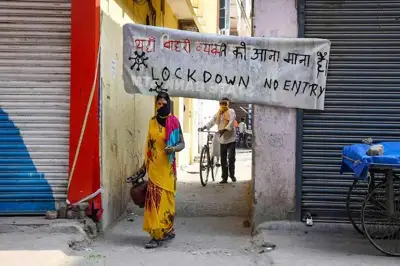 यहाँ बाहरी व्यक्ती को आना माना है
LOCKDOWN NO ENTRY